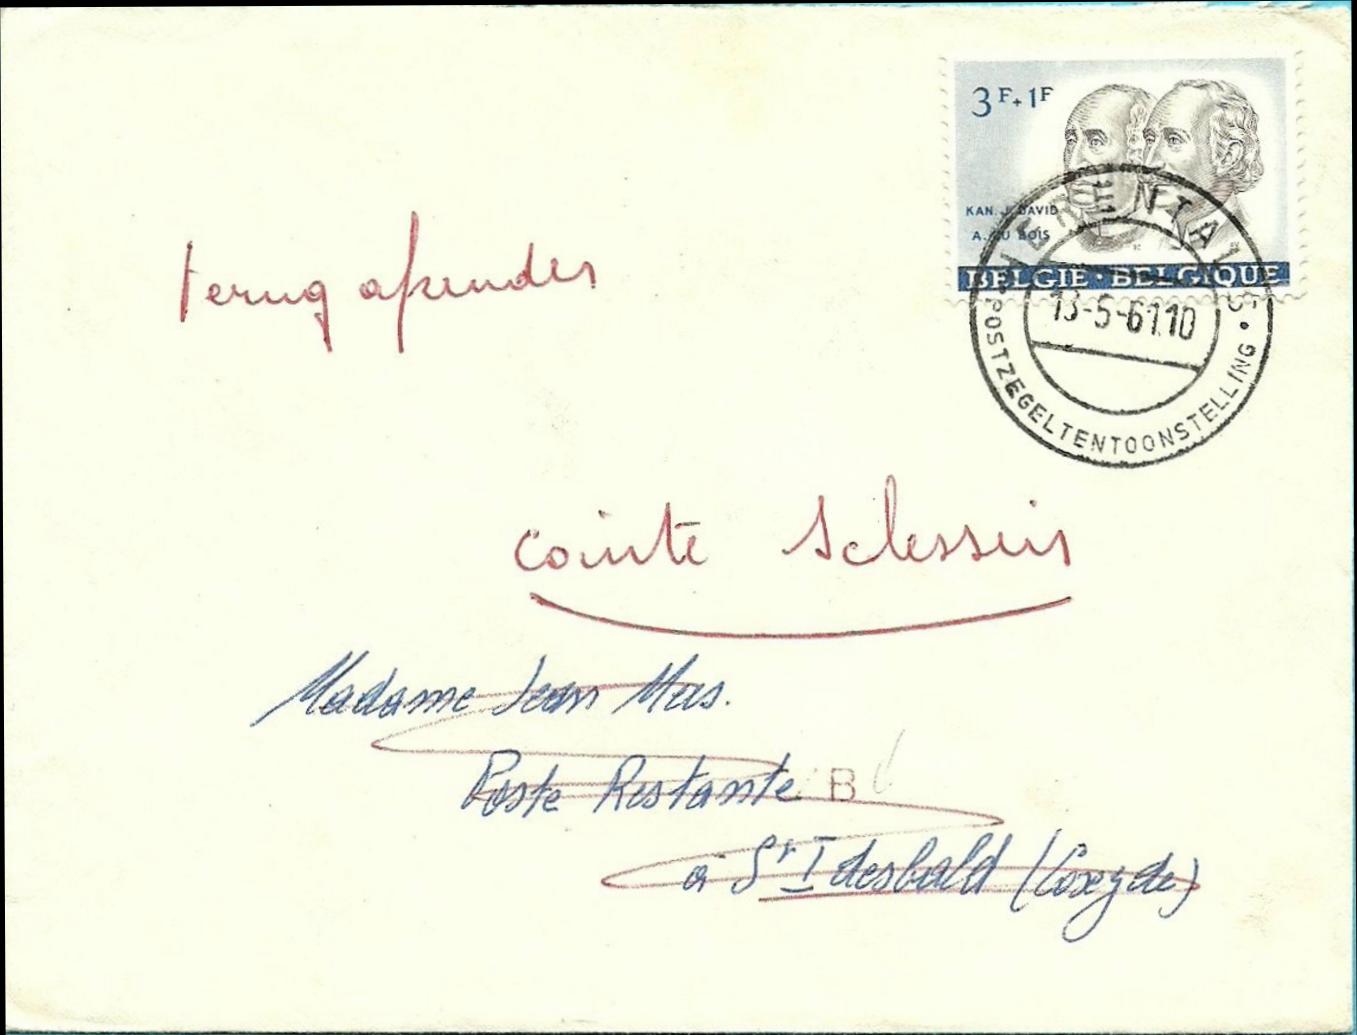 3 F. + 1 F
KAN. J. DAVID
A. DU BOIS
BELGIE · BELGIQUE
HERENTALS
13-5-61.10
POSTZEGELTENTOONSTELLING
terug
Cointe Sclessin
Madame Jean
Poste Restante B
à St Idesbald (Coxyde)